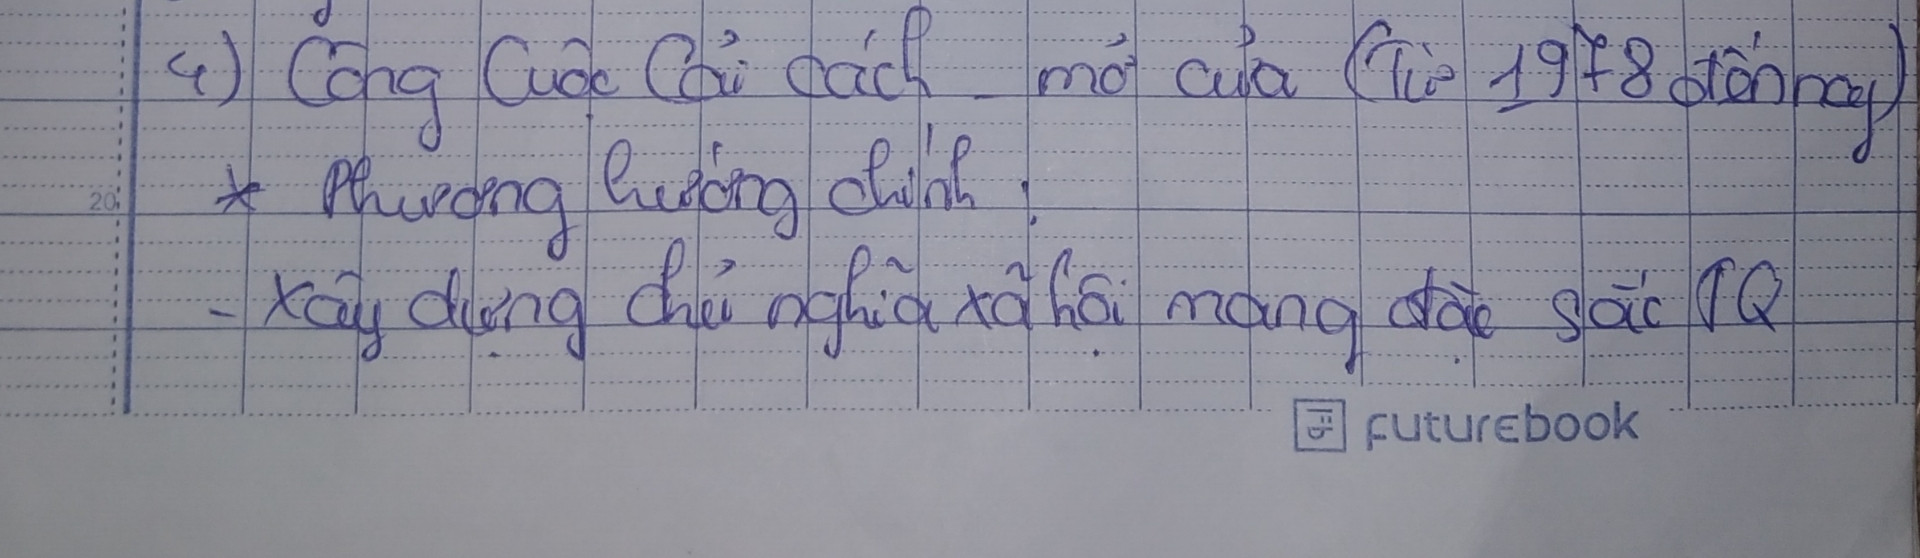 4) Công Cuộc Cải cách - mở cửa (Từ 1978 đến nay)
* Phương hướng chính :
20
- xây dựng chủ nghĩa xã hội mang đặc sắc TQ
futurebook